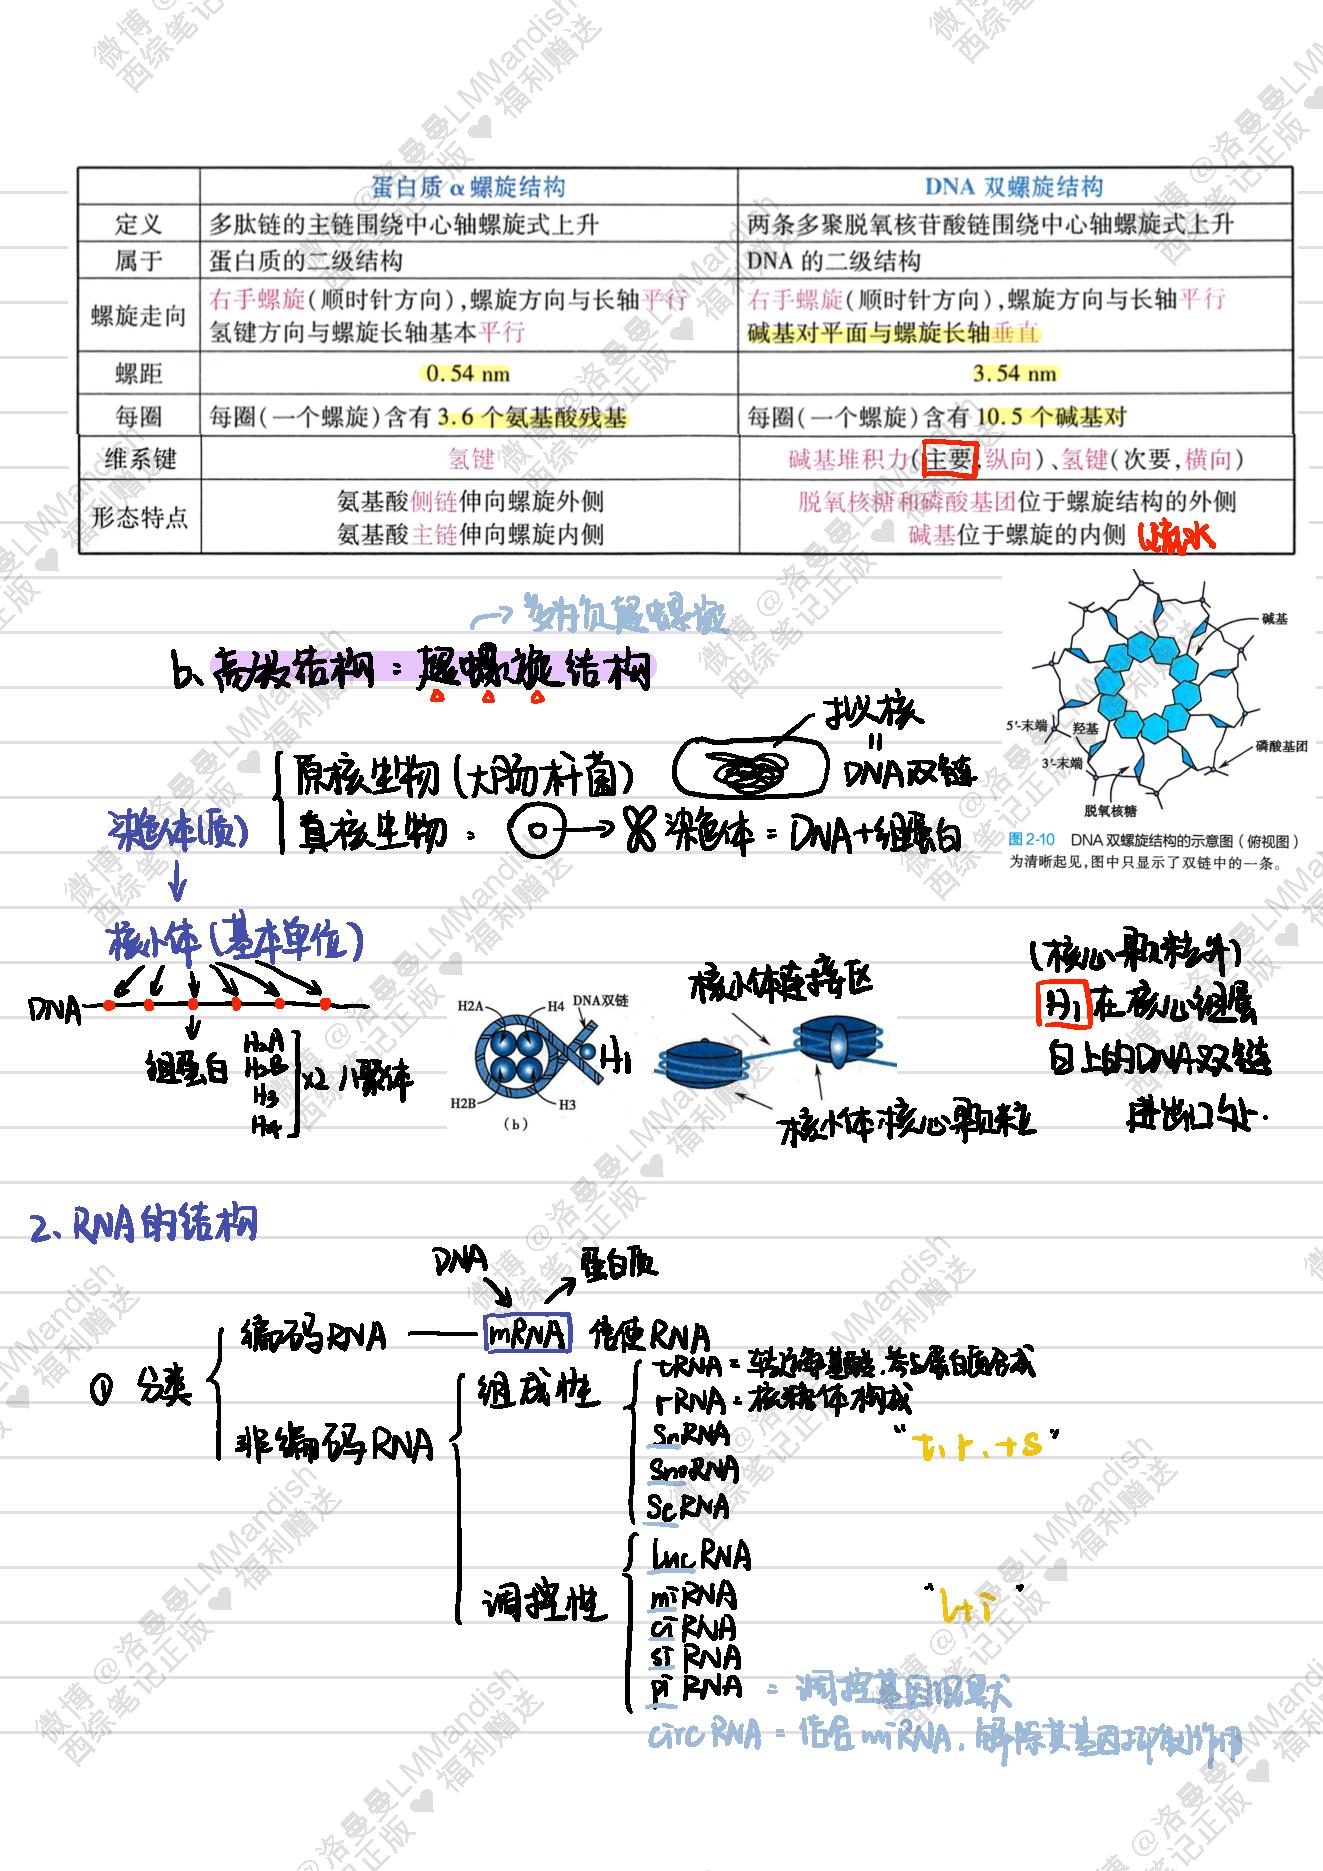 蛋白质 α 螺旋结构 DNA 双螺旋结构
定义 多肽链的主链围绕中心轴螺旋式上升 两条多聚脱氧核苷酸链围绕中心轴螺旋式上升
属于 蛋白质的二级结构 DNA 的二级结构
螺旋走向 右手螺旋(顺时针方向),螺旋方向与长轴平行 右手螺旋(顺时针方向),螺旋方向与长轴平行
氢键方向与螺旋长轴基本平行 碱基对平面与螺旋长轴垂直
螺距 0.54 nm 3.54 nm
每圈 每圈(一个螺旋)含有 3.6 个氨基酸残基 每圈(一个螺旋)含有 10.5 个碱基对
维系键 氢键 碱基堆积力(主要,纵向)、氢键(次要,横向)
形态特点 氨基酸侧链伸向螺旋外侧 脱氧核糖和磷酸基团位于螺旋结构的外侧
氨基酸主链伸向螺旋内侧 碱基位于螺旋的内侧 疏水
→多为负超螺旋
b、高级结构:超螺旋结构
原核生物(大肠杆菌) 拟核
=
DNA双链
染色体(质) 真核生物: 染色体=DNA+组蛋白
碱基
5′-末端 羟基
3′-末端
磷酸基团
脱氧核糖
图 2-10 DNA 双螺旋结构的示意图(俯视图)
为清晰起见,图中只显示了双链中的一条。
核小体(基本单位)
DNA
组蛋白 H2A
H2B
H3
H4
x2 八聚体
H2A H4 DNA双链
H1
H2B H3
(b)
核小体连接区
核小体核心颗粒
(核心颗粒外)
H1在核心组蛋
白上的DNA双链
进出口处.
2、RNA的结构
DNA 蛋白质
① 分类
编码RNA —— mRNA 信使RNA
非编码RNA
组成性
tRNA=转运氨基酸.参与蛋白质合成
rRNA=核糖体构成
SnRNA "t、r、+s"
SnoRNA
ScRNA
调控性
lncRNA
miRNA "l+i"
ciRNA
siRNA
piRNA =调控基因沉默
circRNA=结合miRNA.解除其基因抑制作用
微博 @洛曼曼LMMandish
西综笔记正版 ♥ 福利赠送